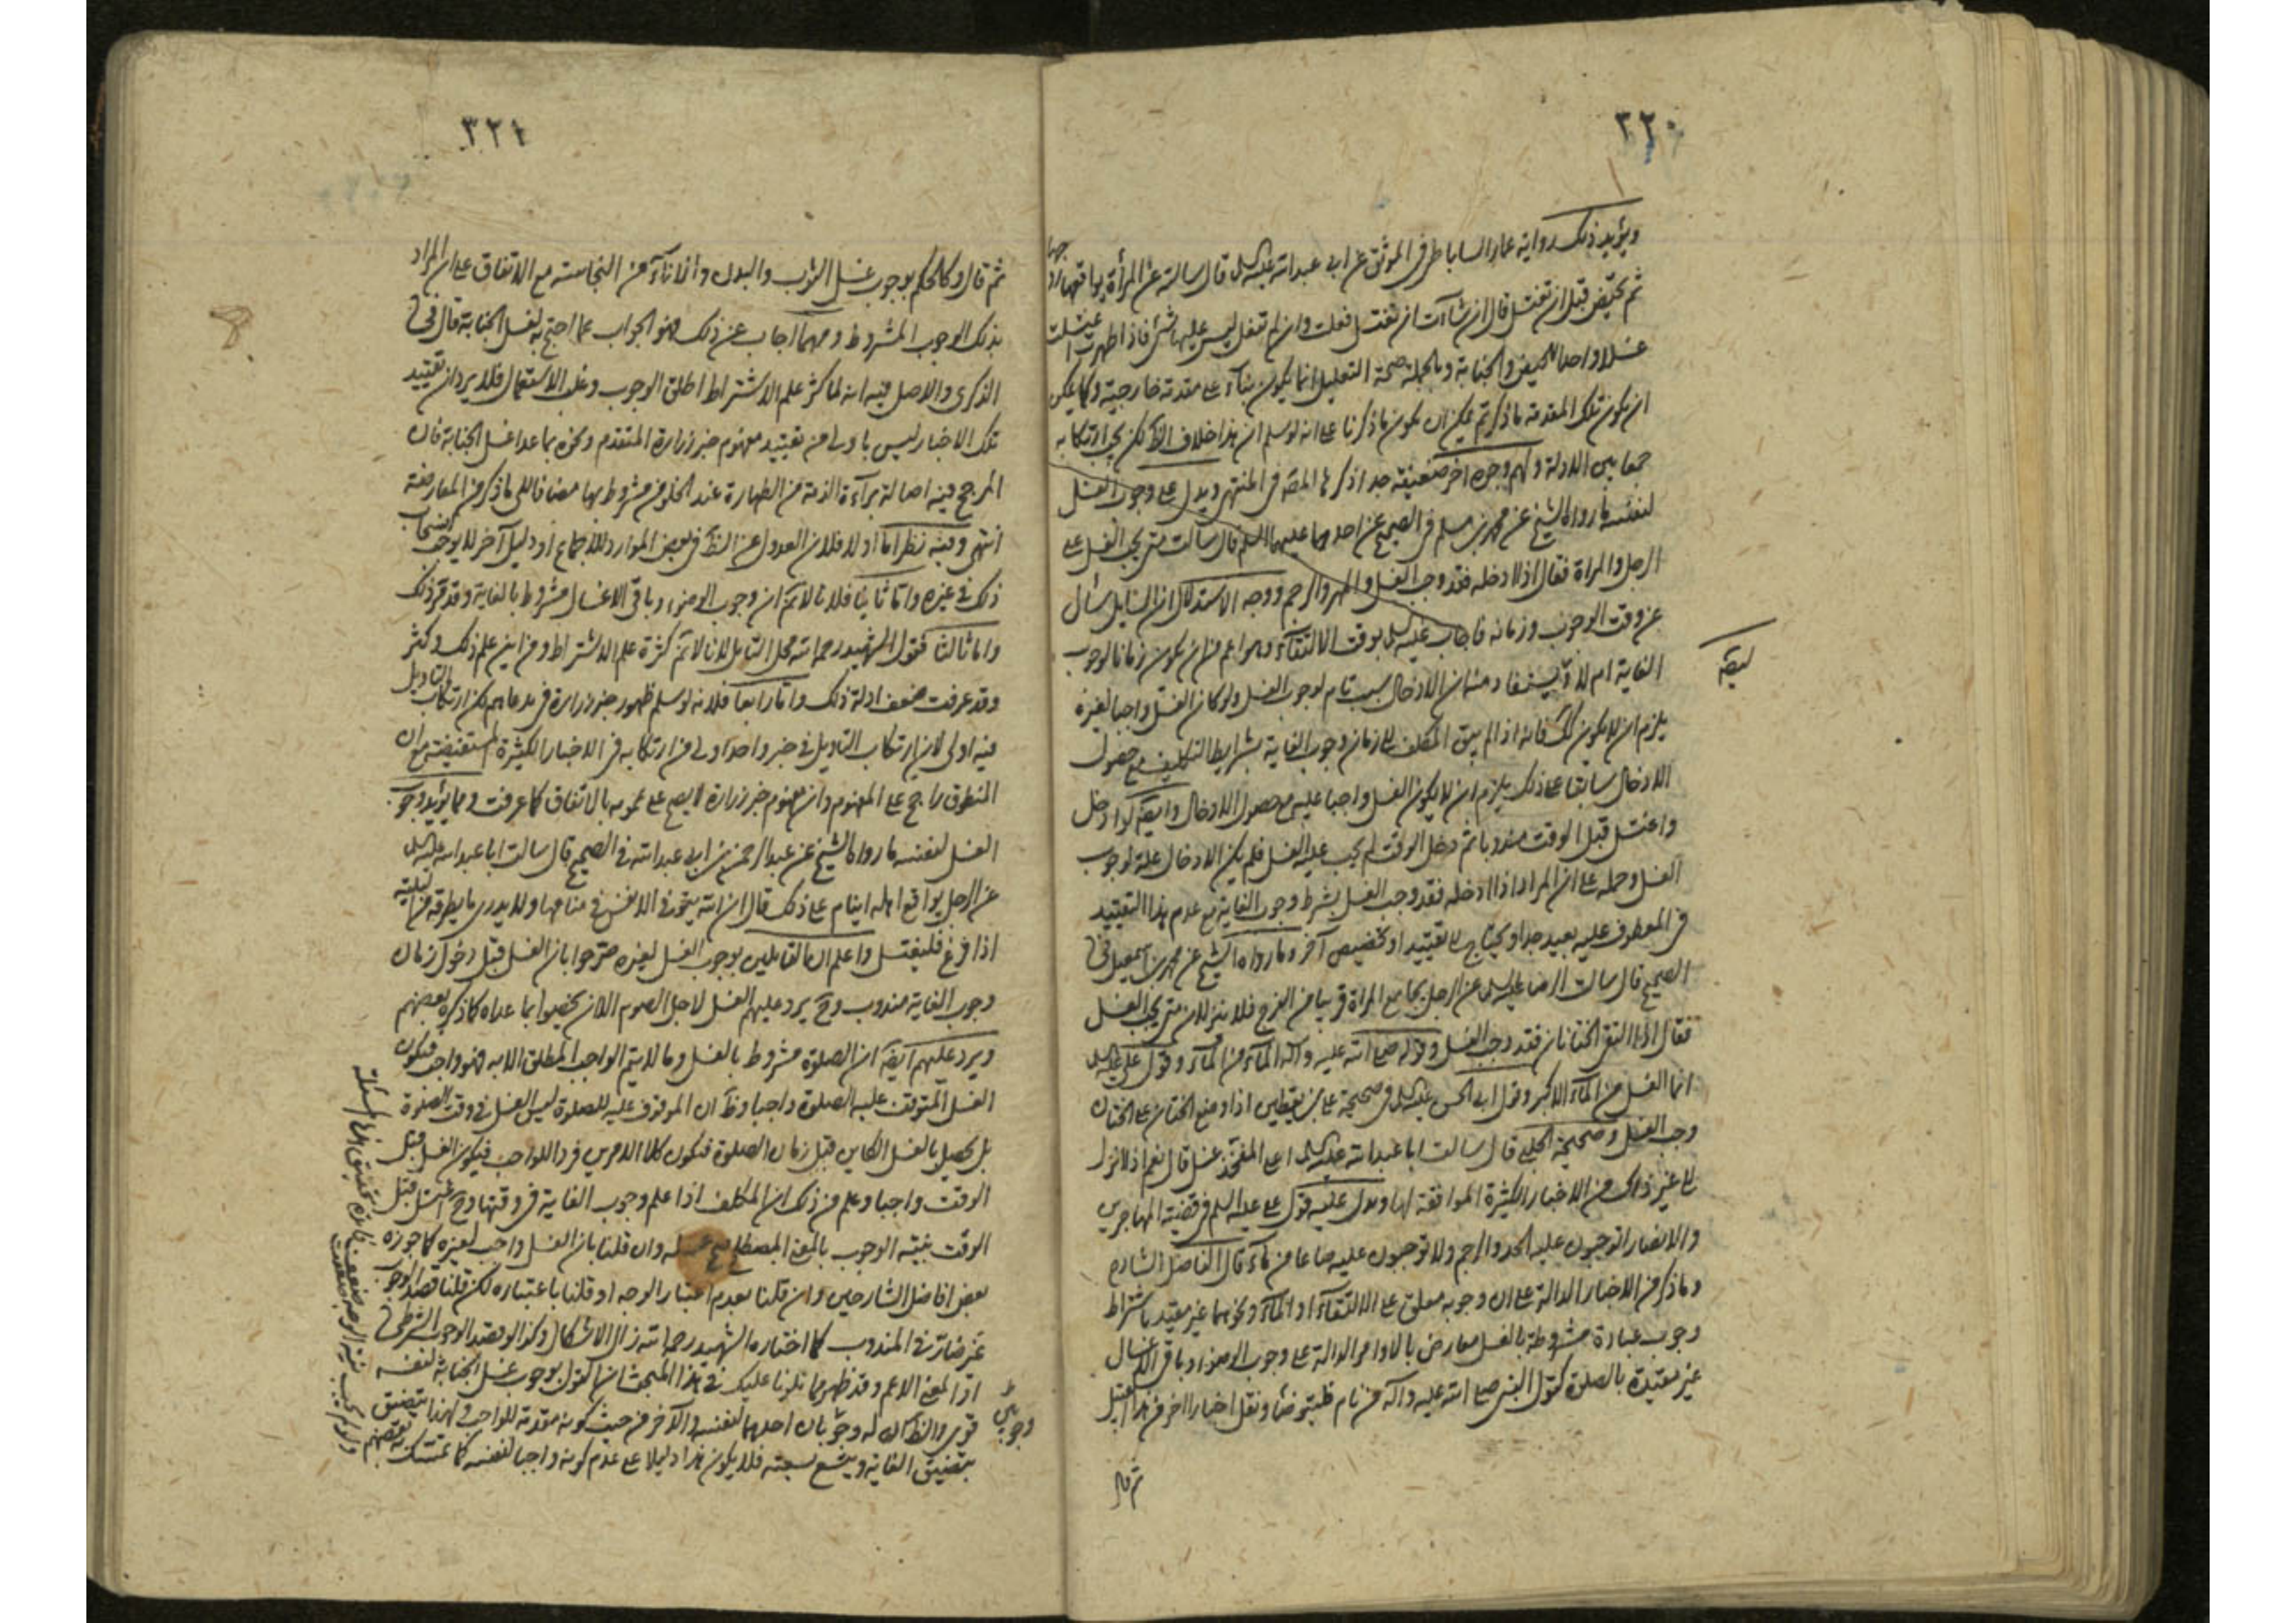 ٣٢٠
ويؤيد ذلك رواية عمار الساباطي في الموثق عن ابي عبد الله عليه السلم قال سالته عن المرأة يواقعها زوجها
ثم تحيض قبل ان تغتسل قال ان شآءت ان تغتسل فعلت وان لم تفعل ليس عليها شئ فاذا طهرت اغتسلت
غسلا واحدا للحيض والجنابة وبالجملة صحة التعليل انما يكون بنآء على مقدمة خارجية وكما يمكن
ان يكون تلك المقدمة ما ذكرتم يمكن ان يكون ما ذكرنا على انه لو سلم ان هذا خلاف الظ لكن يجب ارتكابه
جمعا بين الادلة ولهم وجوه اخر ضعيفة جدا ذكرها المصر في المنتهى ويدل على وجوب الغسل
لنفسه ما رواه الشيخ عن محمد بن مسلم في الصحيح عن احدهما عليهما السلم قال سالت متى يجب الغسل على
الرجل والمراة فقال اذا ادخله فقد وجب الغسل والمهر والرجم ووجه الاستدلال ان السايل سأل
عن وقت الوجوب وزمانه فاجاب عليه السلم بوقت الالتقآء وهو اعم من ان يكون زمانا لوجوب
الغاية ام لا وايضا يستفاد منه ان الادخال سبب تام لوجوب الغسل ولو كان الغسل واجبا لغيره
يلزم ان لا يكون كك فانه اذا لم يبق المكلف الى زمان وجوب الغاية بشرايط التكليف مع حصول
الادخال سابقا على ذلك يلزم ان لا يكون الغسل واجبا عليه مع حصول الادخال وايضه لو ادخل
واغتسل قبل الوقت مندوبا ثم دخل الوقت لم يجب عليه الغسل فلم يكن الادخال علة لوجوب
الغسل وحمله على ان المراد اذا ادخله فقد وجب الغسل بشرط وجوب الغاية مع عدم هذا التقييد
في المعطوف عليه بعيد جدا ويحتاج الى تقييد او تخصيص آخر وما رواه الشيخ عن محمد بن اسمعيل في
الصحيح قال سالت الرضا عليه السلم عن الرجل يجامع المراة قريبا من الفرج فلا ينزلان متى يجب الغسل
فقال اذا التقى الختانان فقد وجب الغسل وقوله صلى الله عليه وآله المآء من المآء وقول علي عليه السلم
انما الغسل من المآء الاكبر وقول ابي الحسن عليه السلم في صحيحة علي بن يقطين اذا وضع الختان على الختان
وجب الغسل وصحيحة الحلبي قال سالت ابا عبد الله عليه السلم اعلى المفخذ غسل قال نعم اذا انزل
الى غير ذلك من الاخبار الكثيرة الموافقة لها ويدل عليه قول علي عليه السلم في قضية المهاجرين
والانصار اتوجبون عليه الحد والرجم ولا توجبون عليه صاعا من مآء قال الفاضل الشارح
وما ذكر من الاخبار الدالة على ان وجوبه معلق على الالتقآء او المآء ونحوهما غير مقيد باشتراط
وجوب عبادة مشروطة بالغسل معارض بالاوامر الدالة على وجوب الوضوء وباقي الاغسال
غير مقيدة بالصلوة كقول النبي صلى الله عليه وآله من نام فليتوضأ ونقل اخبارا اخر من هذا القبيل
ثم قال
٣٢١
ثم قال وكالحكم بوجوب غسل الثوب والبدن والانآء من النجاسة مع الاتفاق على ان المراد
بذلك الوجوب المشروط ومهما اجاب عن ذلك فهو الجواب عما احتج به لغسل الجنابة قال في
الذكرى والاصل فيه انه لما كثر علم الاشتراط اطلق الوجوب وغلب الاستعمال فلا يرد ان تقييد
تلك الاخبار ليس باولى من تقييد مفهوم خبر زرارة المتقدم ونحوه بما عدا غسل الجنابة فان
المرجح فيه اصالة برآءة الذمة من الطهارة عند الخلو من مشروط بها مضافا الى ما ذكر من المعارضة
انتهى وفيه نظر اما اولا فلان العدول عن الظ في بعض الموارد للاجماع او دليل آخر لا يوجب ارتكاب
ذلك في غيره واما ثانيا فلانا لا نم ان وجوب الوضوء وباقي الاغسال مشروط بالغاية وقد مر ذلك
واما ثالثا فقول الشهيد رحمه الله محل التأمل لانا لا نم كثرة علم الاشتراط ومن اين علم ذلك وكثر
وقد عرفت ضعف ادلة ذلك واما رابعا فلانه لو سلم ظهور خبر زرارة في مدعاهم لكن ارتكاب التاويل
فيه اولى لان ارتكاب التاويل في خبر واحد اولى من ارتكابه في الاخبار الكثيرة المستفيضة مع ان
المنطوق راجح على المفهوم وان مفهوم خبر زرارة لا يصح على عمومه بالاتفاق كما عرفت ومما يؤيد وجوب
الغسل لنفسه ما رواه الشيخ عن عبد الرحمن بن ابي عبد الله في الصحيح قال سالت ابا عبد الله عليه السلم
عن الرجل يواقع اهله اينام على ذلك قال ان الله يتوفى الانفس في منامها ولا يدري ما يطرقه من البلية
اذا فرغ فليغتسل واعلم ان القايلين بوجوب الغسل لغيره صرحوا بان الغسل قبل دخول زمان
وجوب الغاية مندوب وح يرد عليهم الغسل لاجل الصوم الا ان يخصوا بما عداه كما ذكره بعضهم
ويرد عليهم ايضه ان الصلوة مشروط بالغسل وما لا يتم الواجب المطلق الا به فهو واجب فيكون
الغسل المتوقف عليه الصلوة واجبا وظ ان الموقوف عليه للصلوة ليس الغسل في وقت الصلوة
بل يحصل بالغسل الكاين قبل زمان الصلوة فيكون كلا الامرين فردا للواجب فيكون الغسل قبل
الوقت واجبا وعلم من ذلك ان المكلف اذا علم وجوب الغاية في وقتها وح اغتسل قبل
الوقت بنية الوجوب بالمعنى المصطلح صح غسله وان قلنا بان الغسل واجب لغيره كما جوزه
بعض افاضل الشارحين وان قلنا بعدم اعتبار الوجه او قلنا باعتباره لكن قلنا قصد الوجوب
غير ضار في المندوب كما اختاره الشهيد رحمه الله زال الاشكال وكذا لو قصد الوجوب الشرطي
اذ المعنى الاعم وقد ظهر مما تلونا عليك في هذا المبحث ان القول بوجوب غسل الجنابة لنفسه
قوي والظ ان له وجوبان احدهما لنفسه والآخر من حيث كونه مقدمة للواجب ولهذا يتضيق
بتضيق الغاية ويتسع بسعته فلا يكون هذا دليلا على عدم كونه واجبا لنفسه كما تمسك به بعضهم
وجوبين